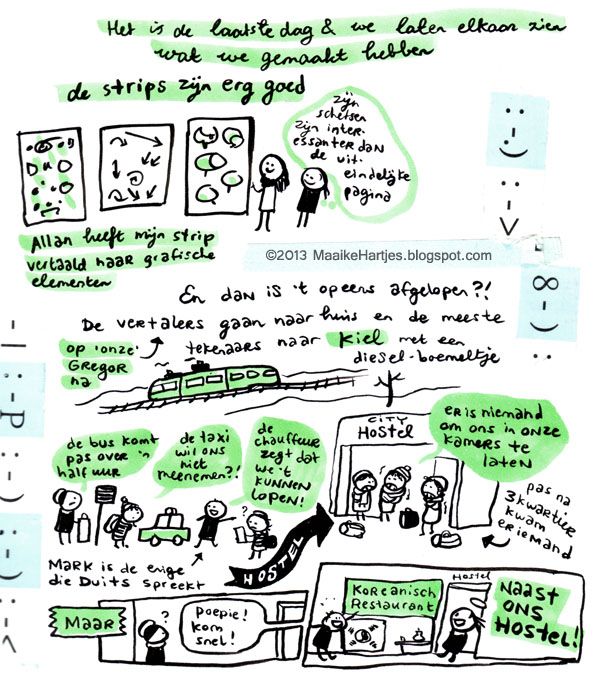 Het is de laatste dag & we laten elkaar zien
wat we gemaakt hebben
de strips zijn erg goed
zijn
schetsen
zijn inter-
essanter dan
de uit-
eindelijke
pagina
Allan heeft mijn strip
vertaald naar grafische
elementen
©2013 MaaikeHartjes.blogspot.com
En dan is 't opeens afgelopen?!
De vertalers gaan naar huis en de meeste
tekenaars naar Kiel met een
diesel-boemeltje
op 'onze'
Gregor
na
de bus komt
pas over 'n
half uur
de taxi
wil ons
niet
meenemen?!
de
chauffeur
zegt dat
we 't
kunnen
lopen!
City
Hostel
er is niemand
om ons in onze
kamers te
laten
pas na
3 kwartier
kwam
er iemand
?
Mark is de enige
die Duits spreekt
HOSTEL
Maar
?
Poepie!
Kom
snel!
Koreanisch
Restaurant
Hostel
Naast
ons
Hostel!
:-)
:-<
8-)
:
-|
:-p
:-)
:-)
:-<